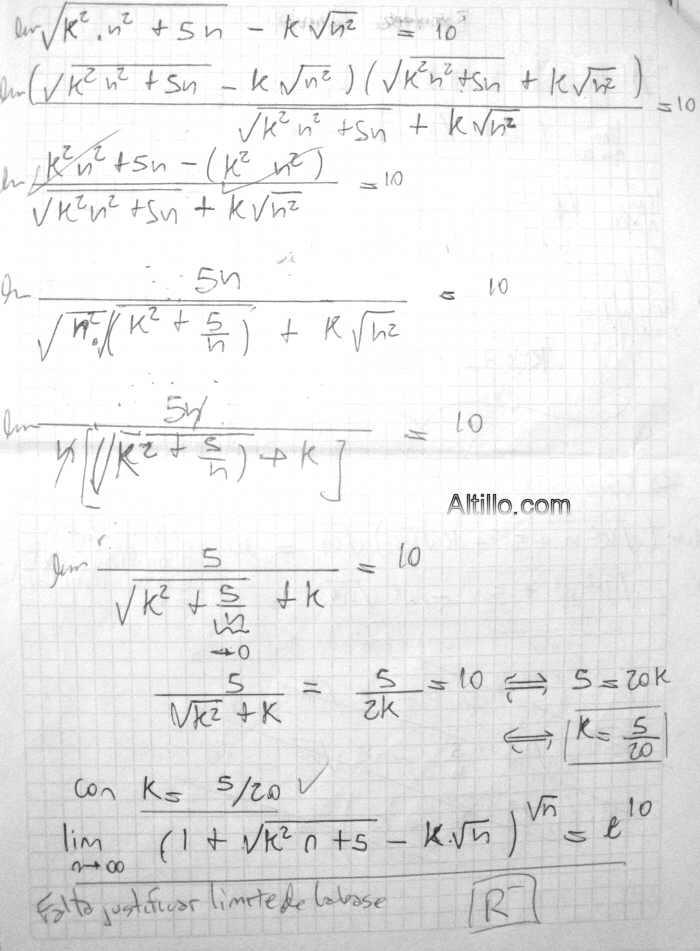 lim √(k² . n² + 5n) - k√n² = 10
lim (√(k² n² + 5n) - k √n²) (√(k² n² + 5n) + k√n²) / (√(k² n² + 5n) + k√n²) = 10
lim (k² n² + 5n - (k² n²)) / (√(k² n² + 5n) + k√n²) = 10
lim 5n / (√(n² . (k² + 5/n)) + k √n²) = 10
lim 5n / (n [√(k² + 5/n) + k]) = 10
Altillo.com
lim 5 / (√(k² + 5/n) + k) = 10
→0
5 / (√k² + k) = 5 / 2k = 10 ⟺ 5 = 20k
⟺ k = 5/20
con k = 5/20 ✓
lim n→∞ (1 + √(k² n + 5) - k.√n)^√n = e^10
Falta justificar limite de la base R⁻